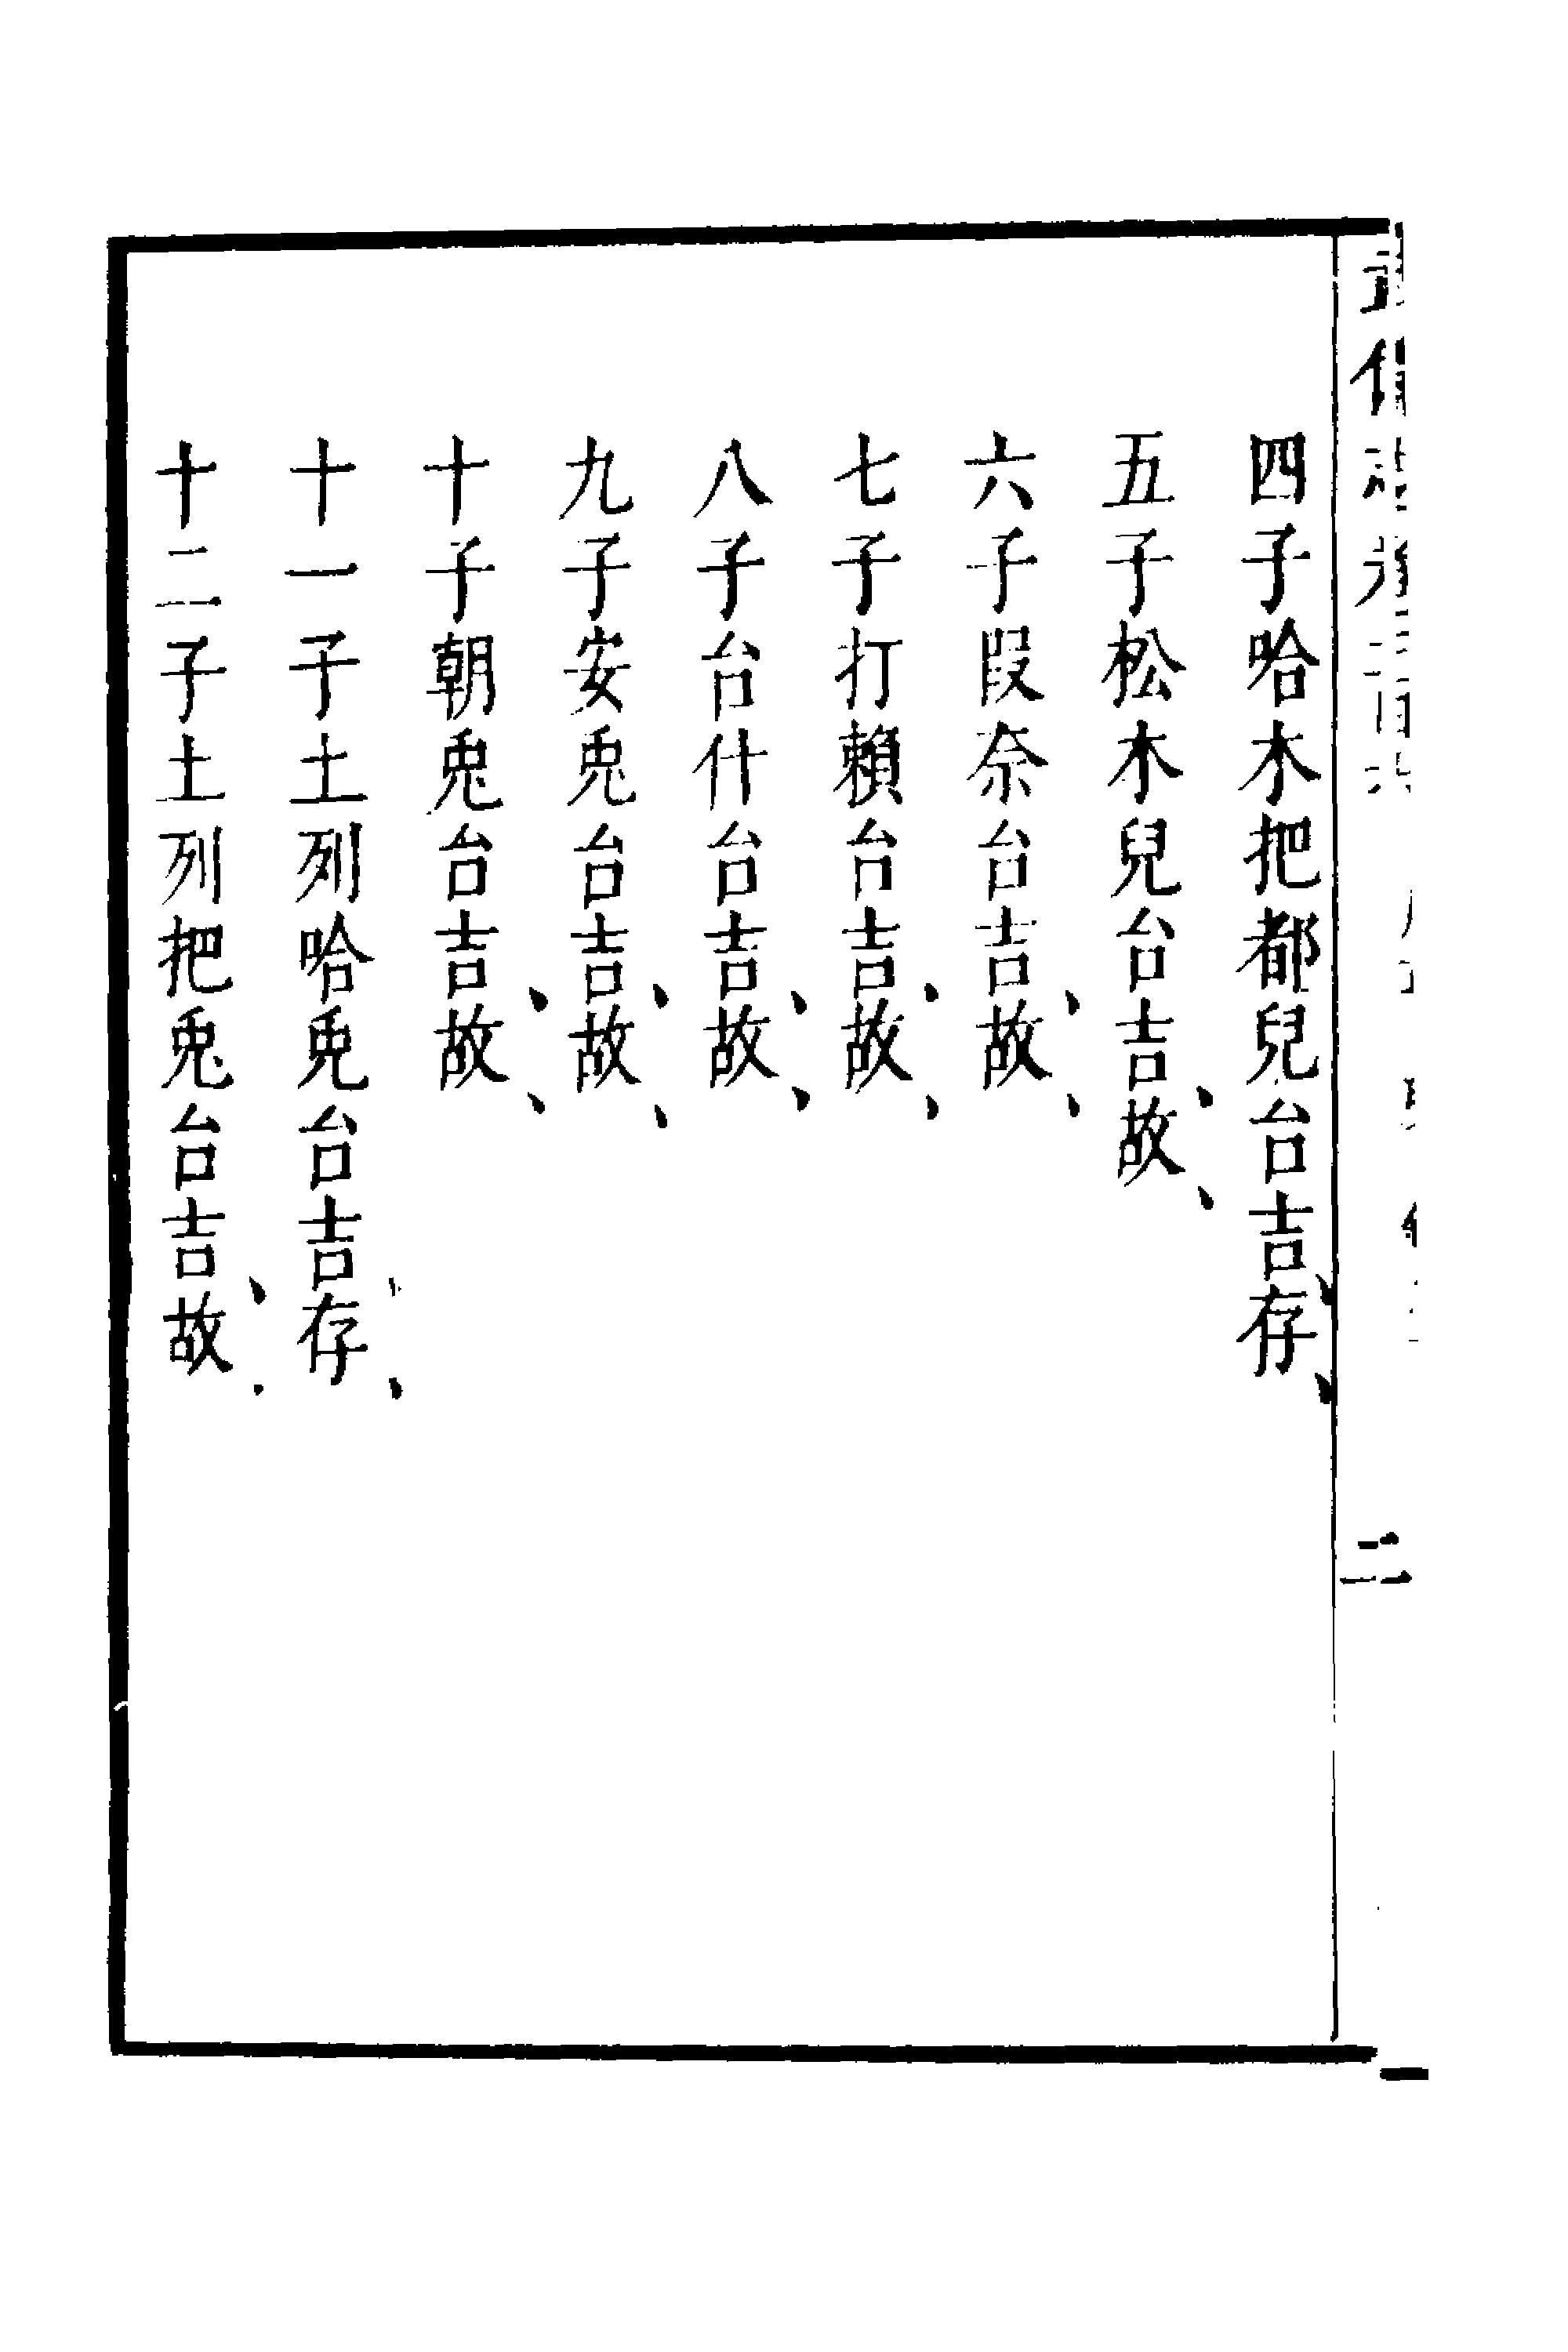 四子哈木把都兒台吉存、
五子松木兒台吉故、
六子叚奈台吉故、
七子打賴台吉故、
八子台什台吉故、
九子安兎台吉故、
十子朝兎台吉故、
十一子土列哈兎台吉存、
十二子土列把兎台吉故、
二